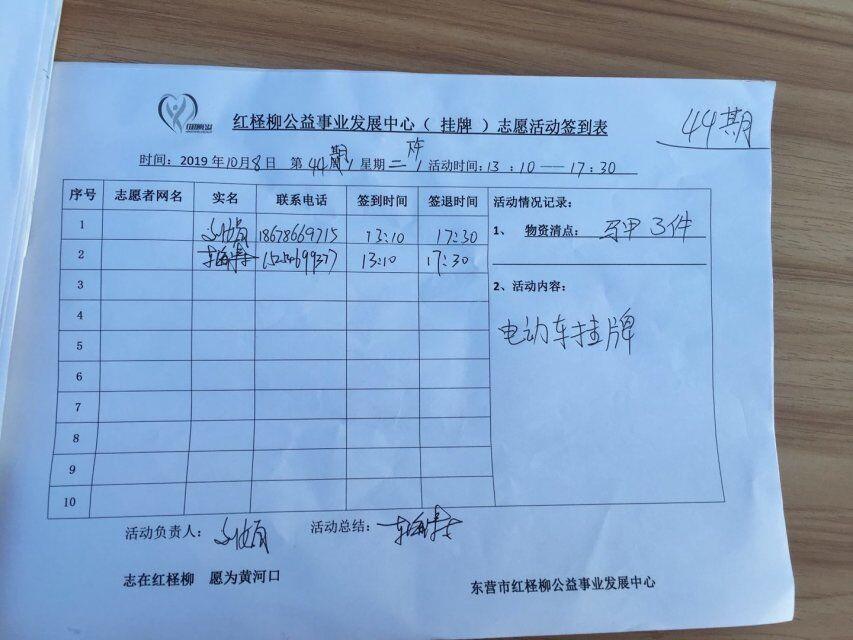 红柽柳公益事业发展中心（ 挂牌 ）志愿活动签到表
44期
时间：2019年10月8日 第44期 星期二 活动时间：13：10——17：30
序号 志愿者网名 实名 联系电话 签到时间 签退时间
1 18678669715 13:10 17:30
2 13:10 17:30
3
4
5
6
7
8
9
10
活动情况记录：
1、 物资清点： 马甲3件
2、活动内容：
电动车挂牌
活动负责人：
活动总结：
志在红柽柳 愿为黄河口
东营市红柽柳公益事业发展中心